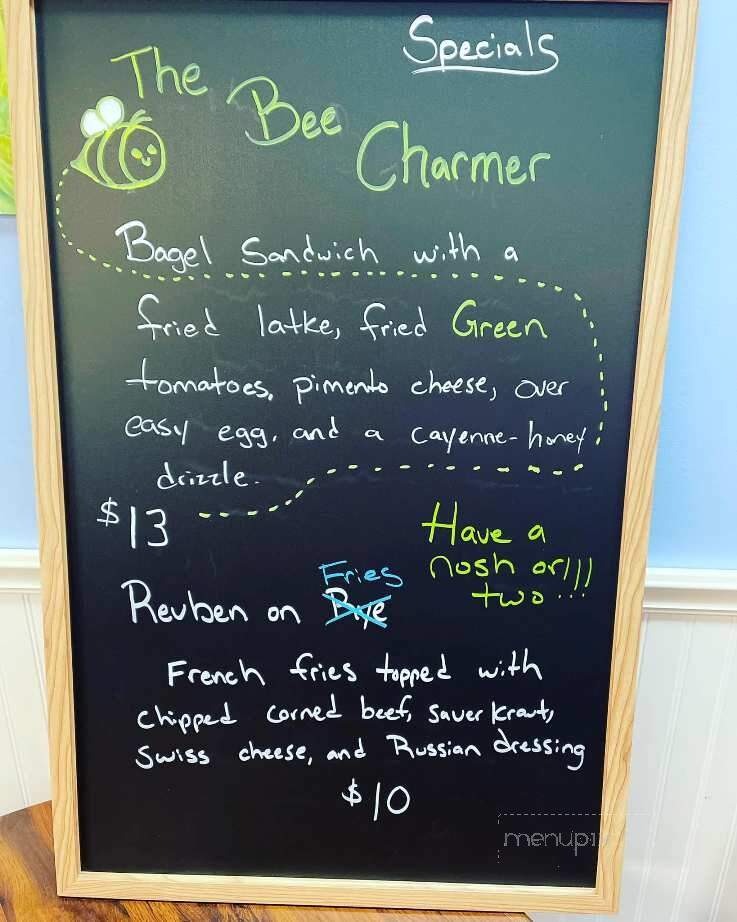 Specials
The Bee Charmer
Bagel Sandwich with a
fried latke, fried Green
tomatoes, pimento cheese, over
easy egg, and a cayenne-honey
drizzle.
$13
Have a
nosh or
two...!!!
Fries
Reuben on Rye
French fries topped with
chipped corned beef, sauerkraut,
swiss cheese, and Russian dressing
$10